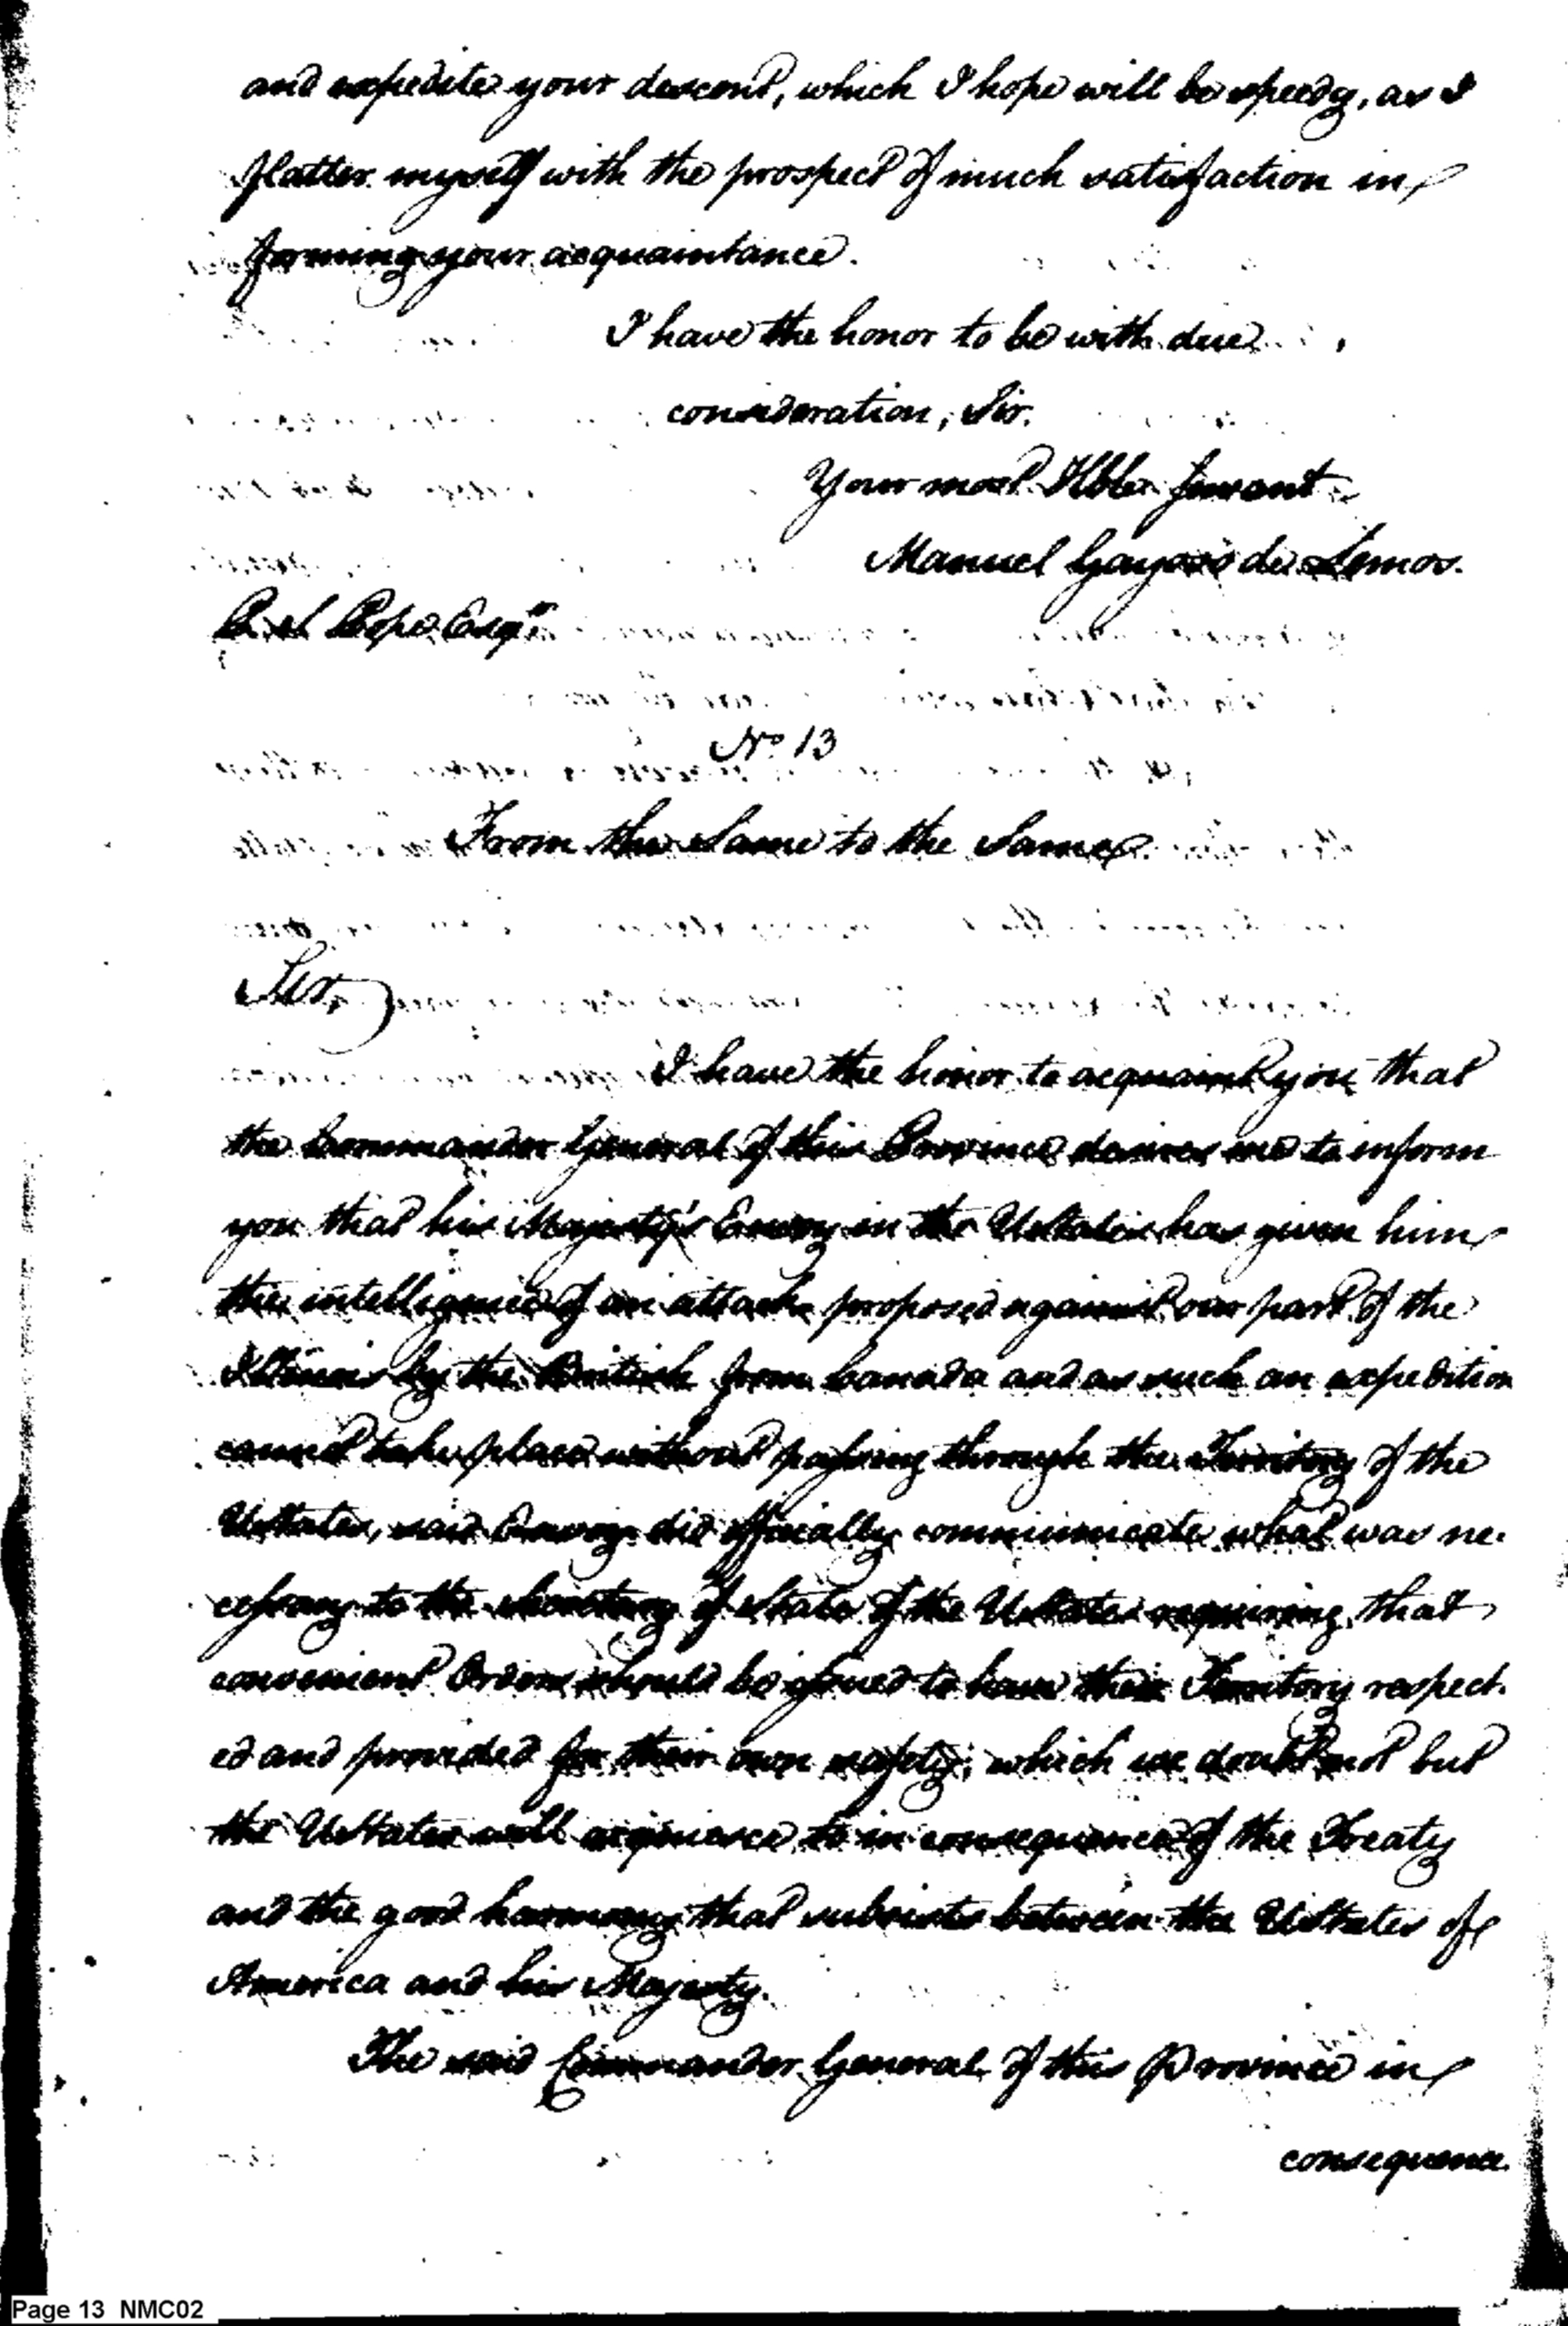 and expedite your descent, which I hope will be speedy, as I
flatter myself with the prospect of much satisfaction in
forming your acquaintance.
I have the honor to be with due
consideration, Sir.
Your most Hble. Servant
Manuel Gayoso de Lemos.
Pope Esqr.
No. 13
From the Same to the Same
Sir,
I have the honor to acquaint you that
the Commander General of this Province desires me to inform
you that his Majesty's Envoy in the UStates has given him
the intelligence of an attack proposed against our part of the
Illinois by the British from Canada and as such an expedition
cannot take place without passing through the Territory of the
UStates, said Envoy did officially communicate what was ne-
cessary to the Secretary of State of the UStates requiring that
convenient Orders should be issued to have their Territory respect-
ed and provided for their own safety; which we doubt not but
the UStates will acquiesce to in consequence of the Treaty
and the good harmony that subsists between the UStates of
America and his Majesty.
The said Commander General of this Province in
consequence.
Page 13 NMC02